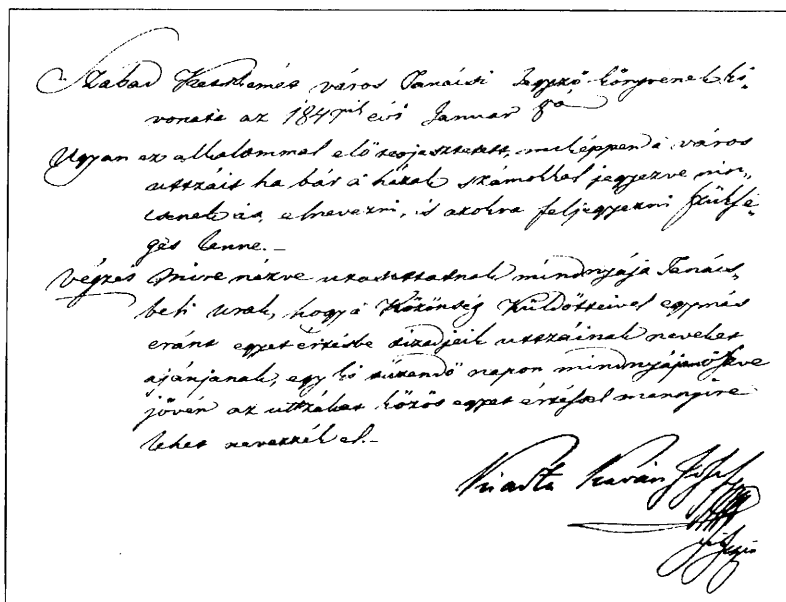 Szabad Kecskemét város Tanácsi Jegyző-könyvének ki-
vonata az 1847ik évi Januar 8á
Ugyan ez alkalommal elő terjesztetett, miképpen a város
uttzáit ha bár a házak számokkal jegyezve nin-
csenek is, elnevezni, is azokra feljegyezni szüksé-
ges lenne.-
Végzés Mire nézve utasittatnak mindnyája Tanács-
beli urak, hogy a Közönség Küldötteivel egymás
eránt egyet értésbe tizedjeik uttzáinak neveket
ajánjanak, egy ki tüzendő napon mindnyájan össve
jövén az uttzákat közös egyet értéssel mennyire
lehet nevezzék el.-
Kiadta Kaván József